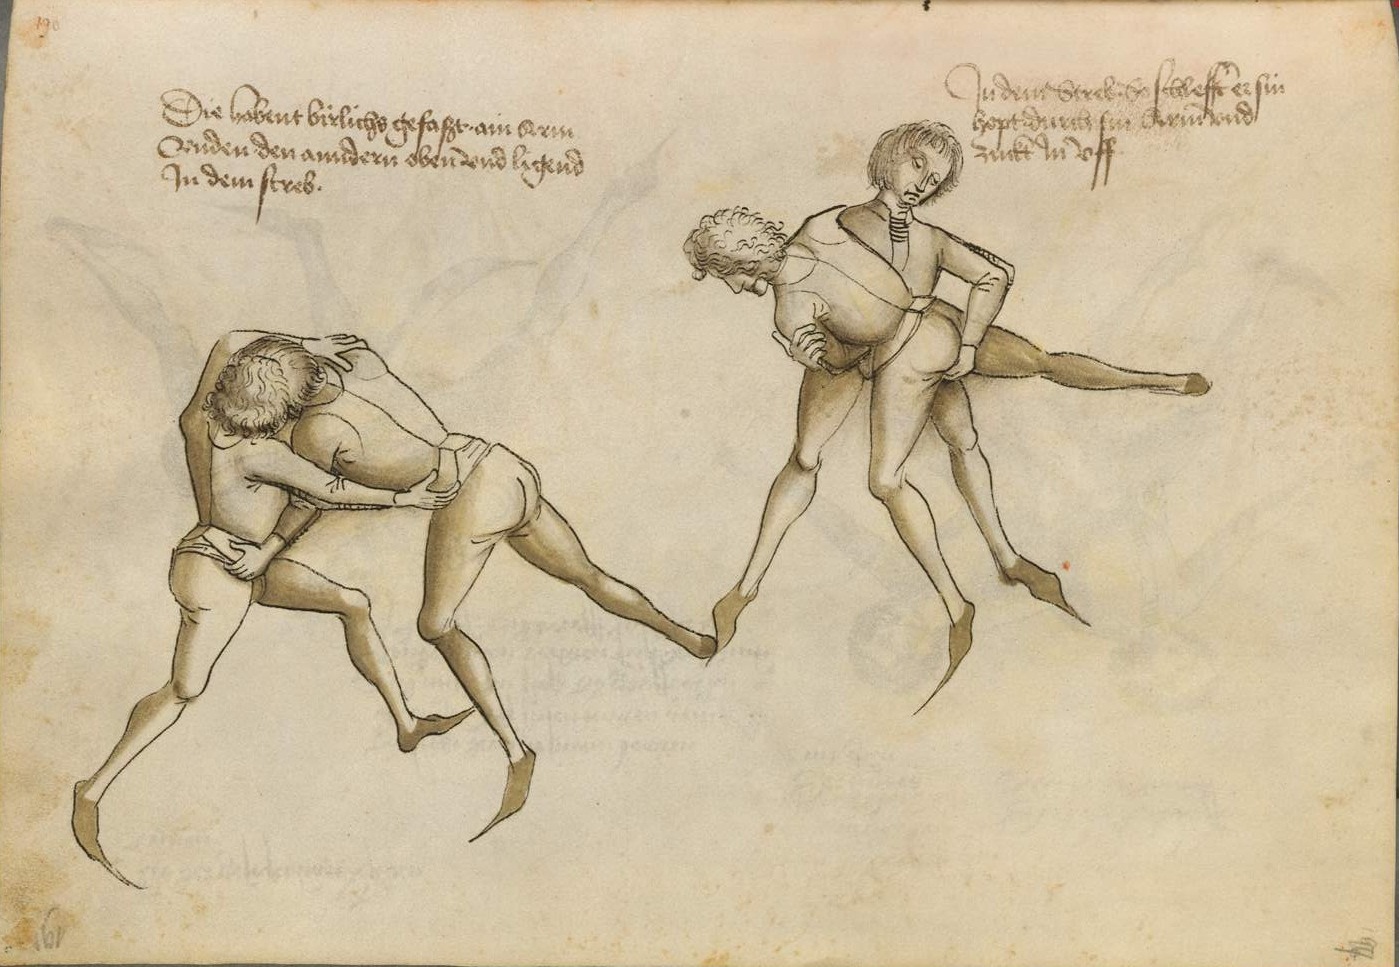 190
Die habent birlichs gefaßt ain Arm
Vnden den anndern oben vnd ligend
In dem streb.
In dem Streb So schlefft er sin
hopt durch sin Arm vnd
zuckt In vff